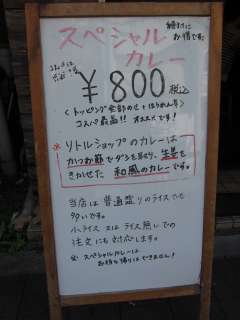 スペシャル
カレー
¥800 税込
<トッピング全部のせ+ほうれん草>
コスパ最高!! オススメです!
※リトルショップのカレーは
かつお節でダシを取り、生姜を
きかせた、和風のカレーです。
当店は普通盛りのライスでも
多いです。
小ライス又はライス無しでの
注文にも対応します。
※ スペシャルカレーは
お持ち帰りはできません!